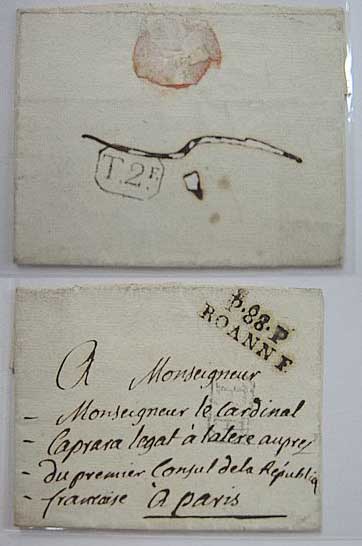 T.2E.
P.88.P
ROANNE
A Monseigneur
Monseigneur le Cardinal
Caprara legat à latere aupres
du premier Consul de la Républiq
francaise à paris